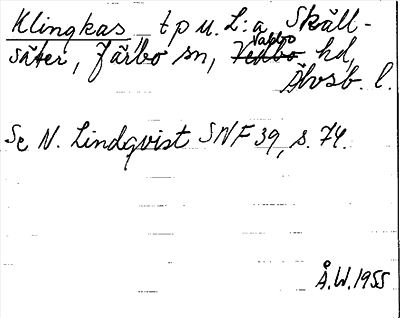 Klingkas, t p u. L:a Skäll-
säter, Järbo sn, Valbo hd,
Älvsb. l.
Se N. Lindqvist SNF 39, s. 74.
Å.W. 1955